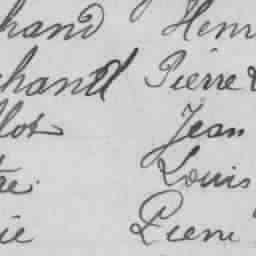 hand Henr
chand Pierre
llot Jean
re. Louis
ie Pierre